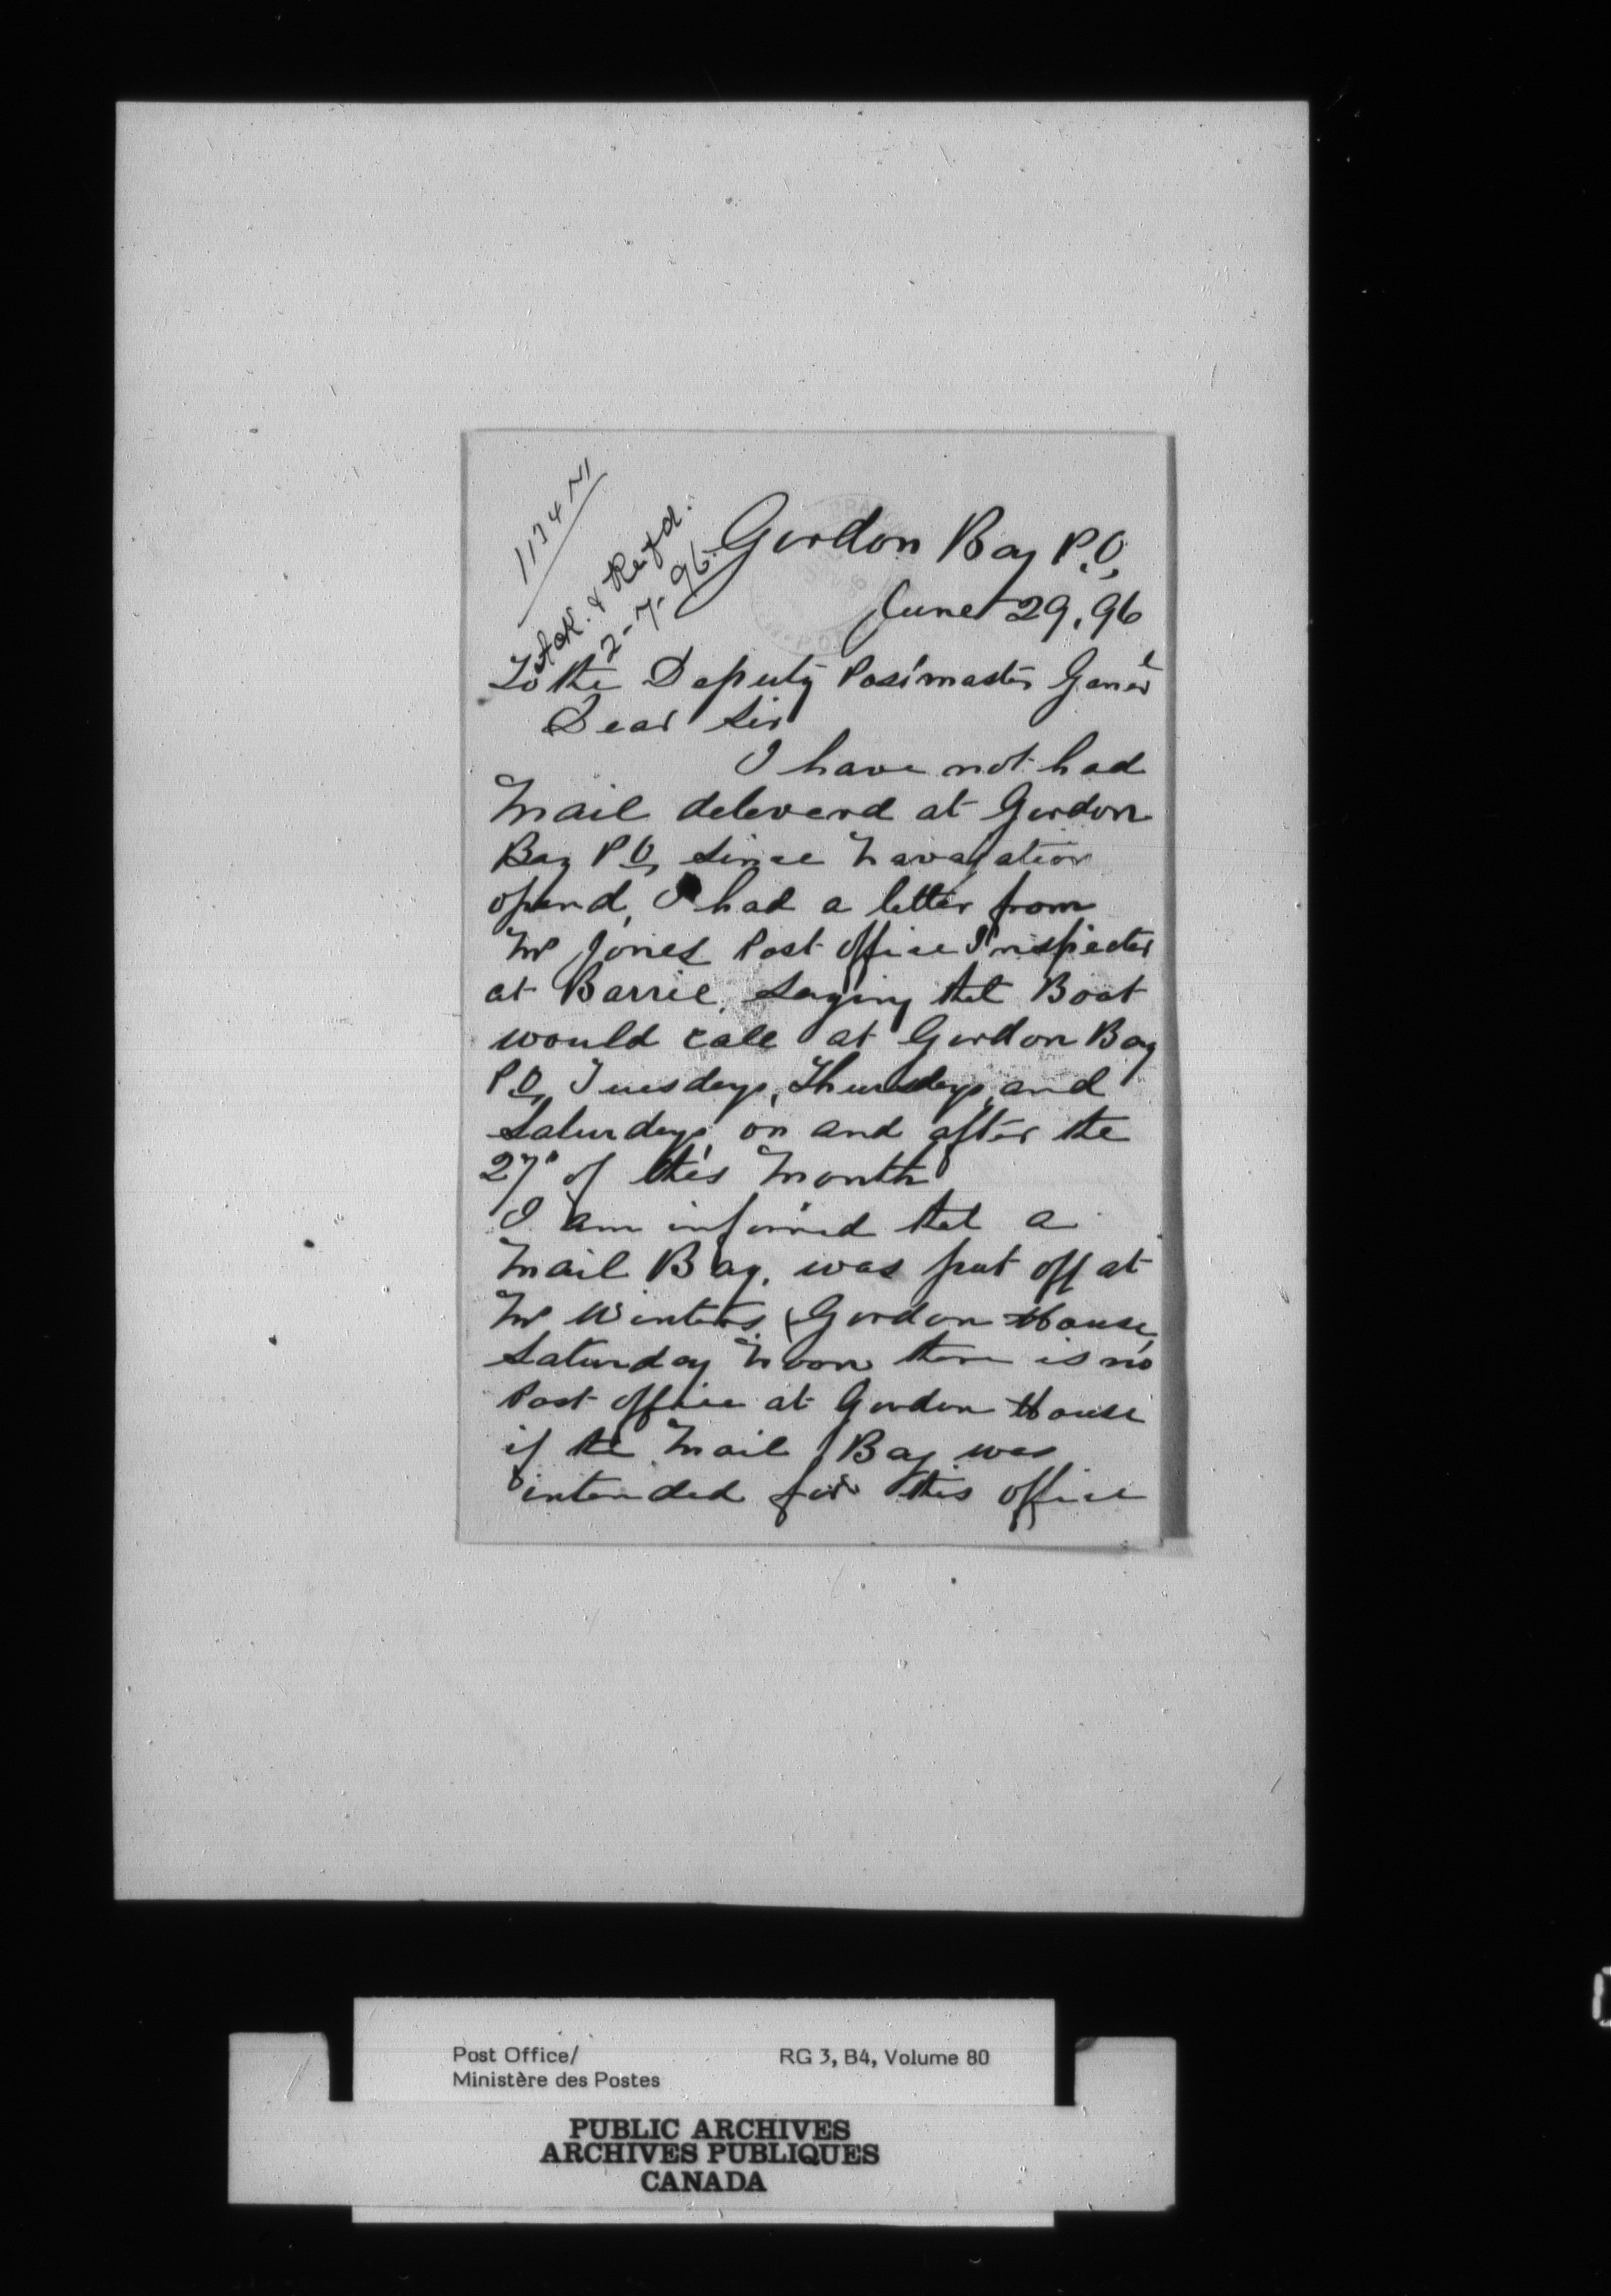 1134 N
Ack. & Refd.
2-7-96.
Gordon Bay P.O,
June 29, 96
To the Deputy Postmaster Gener^l
Dear Sir
I have not had
Mail deleverd at Gordon
Bay P.O, since Navagation
opend, I had a letter from
Mr Jones Post Office Inspecter
at Barrie, saying that Boat
would call at Gordon Bay
P.O, Tuesdays, Thursdays, and
Saturdays, on and after the
27" of this Month
I am informed that a
Mail Bag, was put off at
Mr Winters, (Gordon House,
Saturday Noon there is no
Post Office at Gordon House
if the Mail Bag was
intended for this office
Post Office/ RG 3, B4, Volume 80
Ministère des Postes
PUBLIC ARCHIVES
ARCHIVES PUBLIQUES
CANADA